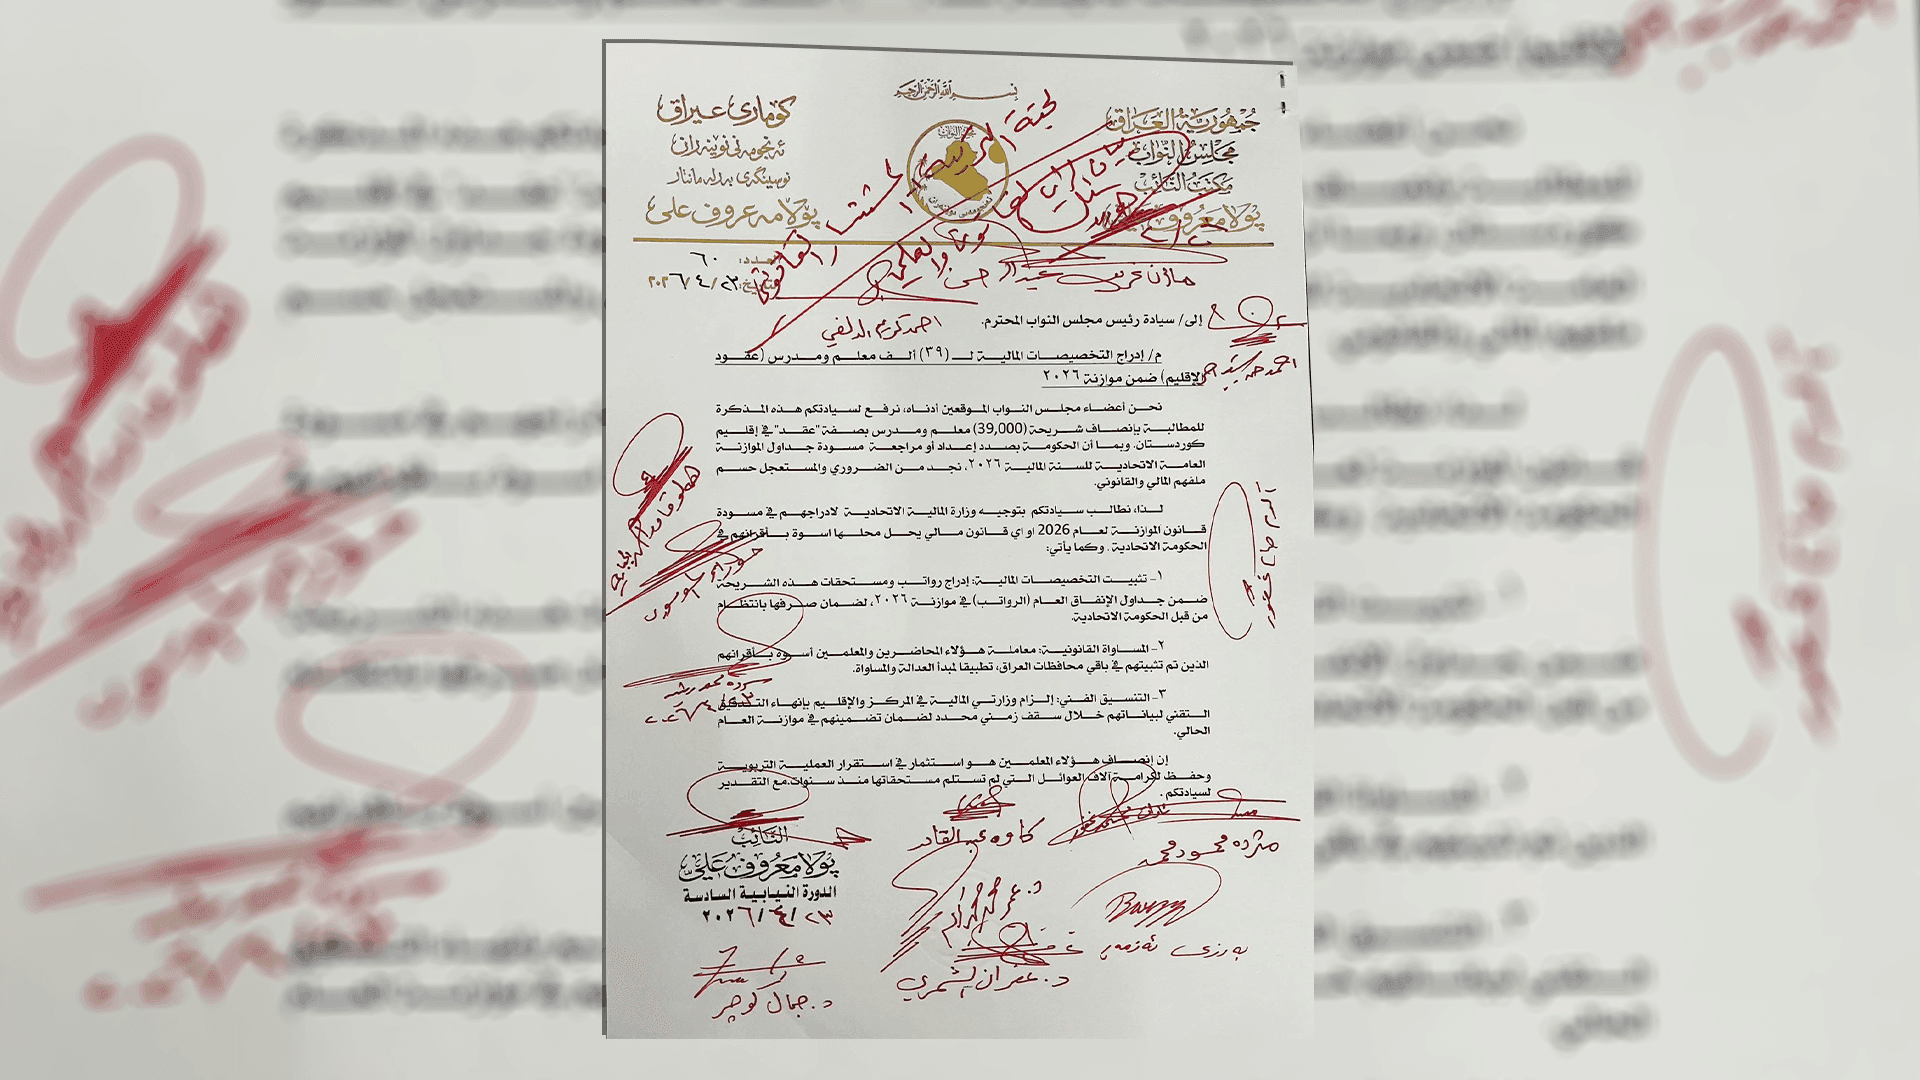 بسم الله الرحمن الرحيم
جمهورية العراق
مجلس النواب
مكتب النائب
پولا معروف علي
كۆماری عیراق
ئەنجومەنی نوێنەران
نوسینگەی پەرلەمانتار
پۆلا مەعروف علی
العدد: ٦٠
التاريخ: ٢٣/٤/٢٠٢٦
لجنة التربية
المستشار القانوني
٤/٢٣
احمد كريم الدلفي
إلى/ سيادة رئيس مجلس النواب المحترم.
م/ إدراج التخصيصات المالية لـ (٣٩) ألف معلم ومدرس (عقود
الإقليم) ضمن موازنة ٢٠٢٦
نحن أعضاء مجلس النواب الموقعين أدناه، نرفع لسيادتكم هذه المذكرة
للمطالبة بإنصاف شريحة (39,000) معلم ومدرس بصفة "عقد" في إقليم
كوردستان. وبما أن الحكومة بصدد إعداد أو مراجعة مسودة جداول الموازنة
العامة الاتحادية للسنة المالية ٢٠٢٦، نجد من الضروري والمستعجل حسم
ملفهم المالي والقانوني.
لذا، نطالب سيادتكم بتوجيه وزارة المالية الاتحادية لادراجهم في مسودة
قانون الموازنة لعام 2026 او اي قانون مالي يحل محلها اسوة بأقرانهم في
الحكومة الاتحادية. وكما يأتي:
١- تثبيت التخصيصات المالية: إدراج رواتب ومستحقات هذه الشريحة
ضمن جداول الإنفاق العام (الرواتب) في موازنة ٢٠٢٦، لضمان صرفها بانتظام
من قبل الحكومة الاتحادية.
٢- المساواة القانونية: معاملة هؤلاء المحاضرين والمعلمين أسوة بأقرانهم
الذين تم تثبيتهم في باقي محافظات العراق، تطبيقا لمبدأ العدالة والمساواة.
٣- التنسيق الفني: إلزام وزارتي المالية في المركز والإقليم بإنهاء التدقيق
التقني لبياناتهم خلال سقف زمني محدد لضمان تضمينهم في موازنة العام
الحالي.
إن إنصاف هؤلاء المعلمين هو استثمار في استقرار العملية التربوية
وحفظ لكرامة آلاف العوائل التي لم تستلم مستحقاتها منذ سنوات. مع التقدير
لسيادتكم.
النائب
پولا معروف علي
الدورة النيابية السادسة
٢٠٢٦/٤/٢٣
كاوه عبدالقادر
مژده محمود محمد
د. جمال كوجر